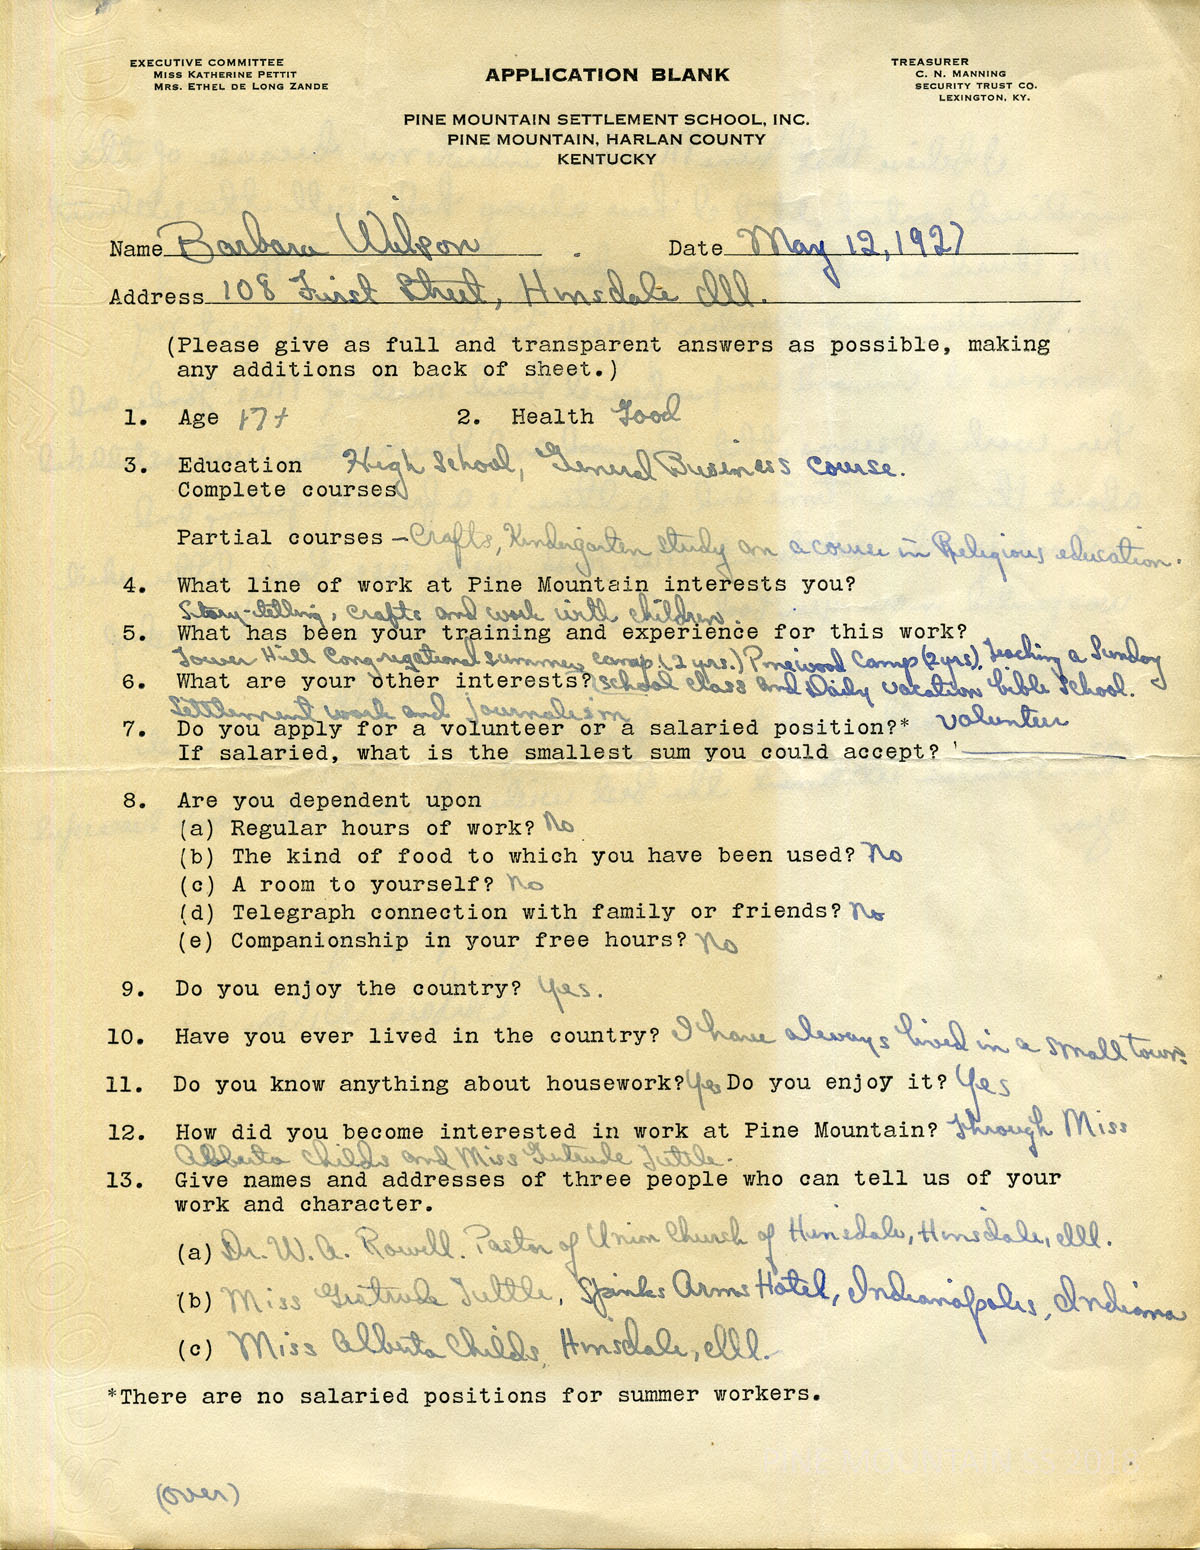 EXECUTIVE COMMITTEE
MISS KATHERINE PETTIT
MRS. ETHEL DE LONG ZANDE
APPLICATION BLANK
TREASURER
C. N. MANNING
SECURITY TRUST CO.
LEXINGTON, KY.
PINE MOUNTAIN SETTLEMENT SCHOOL, INC.
PINE MOUNTAIN, HARLAN COUNTY
KENTUCKY
Name Barbara Wilson Date May 12, 1927
Address 108 First Street, Hinsdale Ill.
(Please give as full and transparent answers as possible, making
any additions on back of sheet.)
1. Age 17+ 2. Health Good
3. Education High School, General Business course.
Complete courses
Partial courses – Crafts, Kindergarten study on a course in Religious education.
4. What line of work at Pine Mountain interests you?
Story-telling, crafts and work with children.
5. What has been your training and experience for this work?
Tower Hill Congregational summer camp (2 yrs.) Pinewood Camp (2 yrs), Teaching a Sunday
6. What are your other interests? (School class and Daily vacation bible School.
Settlement work and journalism
7. Do you apply for a volunteer or a salaried position?* volunteer
If salaried, what is the smallest sum you could accept?
8. Are you dependent upon
(a) Regular hours of work? No
(b) The kind of food to which you have been used? No
(c) A room to yourself? No
(d) Telegraph connection with family or friends? No
(e) Companionship in your free hours? No
9. Do you enjoy the country? Yes.
10. Have you ever lived in the country? I have always lived in a small town.
11. Do you know anything about housework? Yes Do you enjoy it? Yes
12. How did you become interested in work at Pine Mountain? Through Miss
Alberta Childs and Miss Gertrude Tuttle.
13. Give names and addresses of three people who can tell us of your
work and character.
(a) Dr. W. A. Rowell. Pastor of Union Church of Hinsdale, Hinsdale, Ill.
(b) Miss Gertrude Tuttle, Spinks Arms Hotel, Indianapolis, Indiana
(c) Miss Alberta Childs, Hinsdale, Ill.
*There are no salaried positions for summer workers.
(over)